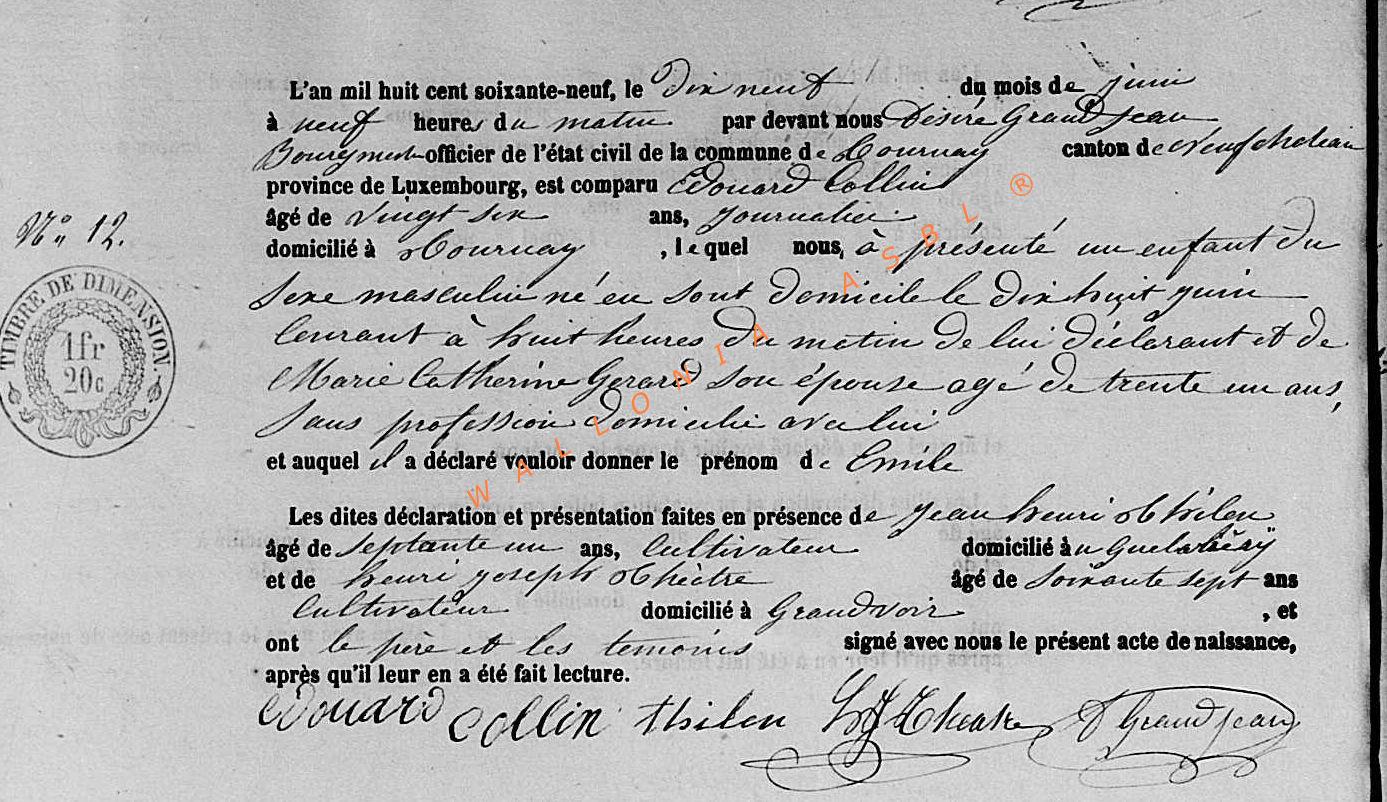 L'an mil huit cent soixante-neuf, le dix neuf du mois de juin
à neuf heures du matin par devant nous Désiré Grandjean
Bourgmestre officier de l'état civil de la commune de Tournay canton de Neufchateau
province de Luxembourg, est comparu Edouard Collin
âgé de vingt six ans, journalier
N° 12.
domicilié à Tournay, lequel nous, à présenté un enfant du
sexe masculin né en sont domicile le dix huit juin
TIMBRE DE DIMENSION.
1fr
20c
courant à huit heures du matin de lui déclarant et de
Marie Catherine Gerard son épouse agé de trente un ans,
sans profession domicilié avec lui
et auquel il a déclaré vouloir donner le prénom de Emile
WALLONIA ASBL ®
Les dites déclaration et présentation faites en présence de Jean henri Thilen
âgé de septante un ans, Cultivateur domicilié à
et de henri joseph Théâtre âgé de soixante sept ans
Cultivateur domicilié à Grandvoir, et
ont le père et les temoins signé avec nous le présent acte de naissance,
après qu'il leur en a été fait lecture.
Edouard Collin thilen HJ Theatre D Grandjean